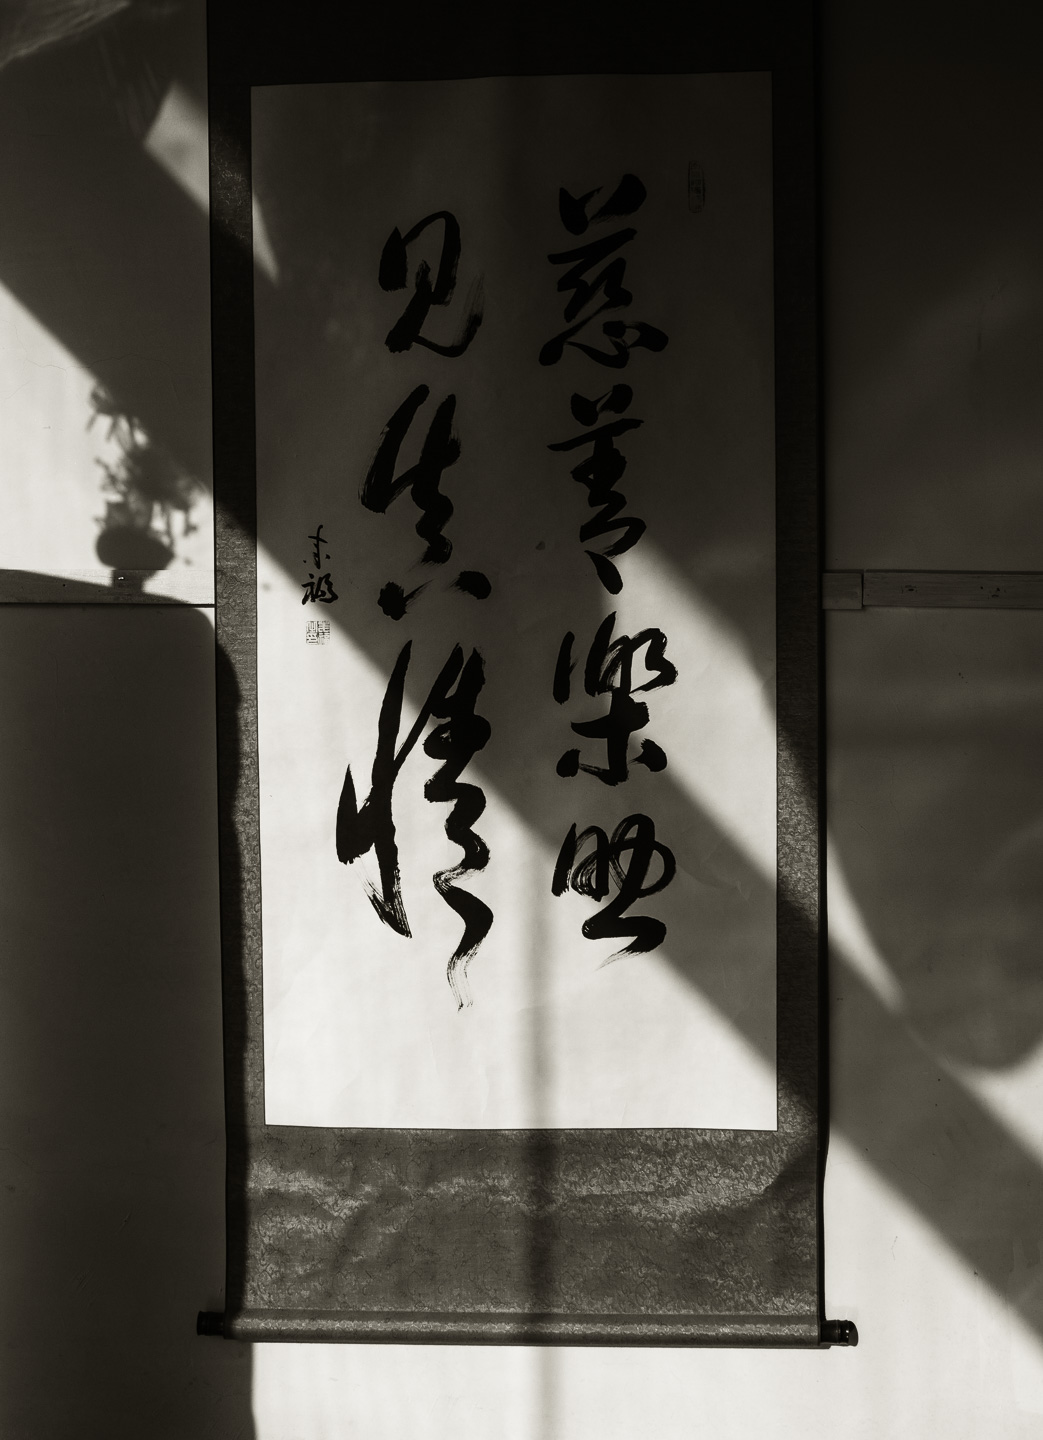 慈善樂助
見真情